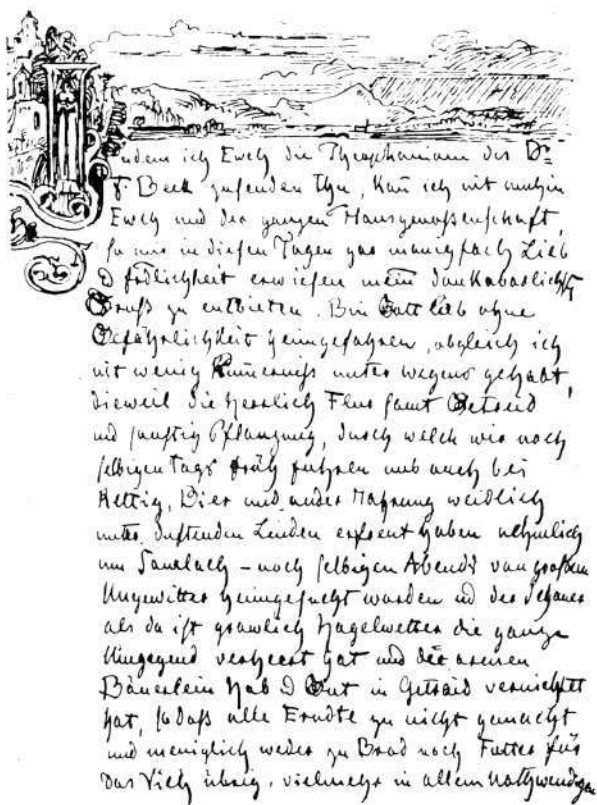 Indem ich Euch die Theophaniam des Dr
F. Beck zusenden thu, kan ich nit umhin
Euch und der ganzen Hausgenossenschaft,
so mir in diesen Tagen gar mancyfach Lieb
& frdlichkeit erwiesen mein dankbarlichst
Gruß zu entbieten. Bin Gott lob ohne
Gefährlichkeit heimgefahren, obgleich ich
nit wenig Kümerniß unter wegens gehabt,
dieweil die herrlich Flur samt Getreid
und sonstig Pflanzung, durch welch wir noch
selbigen tags früh fuhren uns auch bei
Rettig, Bier und ander Nahrung weidlich
unter duftenden Linden erfreut haben nehmlich
um Sauerlach – noch selbigen Abends von großem
Ungewitter heimgesucht worden und der Schauer
als da ist grawlich Hagelwetter die ganze
Umgegend verheert hat und der armen
Bäuerlein Hab & Gut in Getraid vernichtet
hat, so daß alle Erndte zu nicht gemacht
und meniglich weder zu Brod noch Futter für
das Vieh übrig, vielmehr in allem nothwendigen